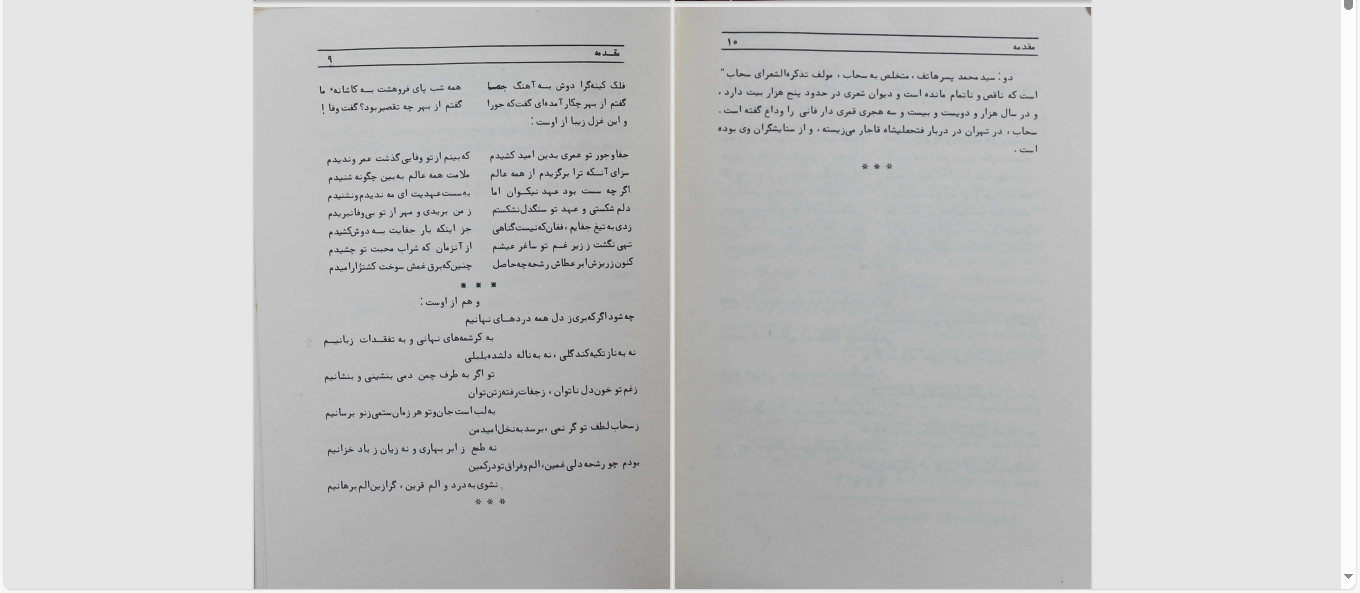 مقدمه
۹
فلک کینه‌گرا دوش بـه آهنگ جفـا همه شب پای فروهشت بـه کاشانهٔ ما
گفتم از بهر چکار آمده‌ای گفت‌که جورا گفتم از بهر چه تقصیر بود؟ گفت وفا !
و این غزل زیبا از اوست :
جفا و جور تو عمری بدین امید کشیدم که‌بینم از تو وفایی گذشت عمر و ندیدم
سزای آنـکه ترا برگزیدم از همه عالم ملامت همه عالم به‌بین چگونه شنیدم
اگر چه سست بود عهد نیکـوان اما به‌سست‌عهدیت ای مه ندیدم‌و‌نشنیدم
دلم شکستی و عهد تو سنگدل‌نشکستم ز من بریدی و مهر از تو بی‌وفانبریدم
زدی‌به‌تیغ جفایم ، فغان‌که‌نیست‌گناهی جز اینکه بار جفایت بـه دوش‌کشیدم
تهی نگشت ز زهر غـم تو ساغر عیشم از آنزمان که شراب محبت تو چشیدم
کنون‌زریزش‌ابر عطاش رشحه‌چه‌حاصل چنین‌که‌برق غمش سوخت کشتزارامیدم
* * *
و هم از اوست :
چه‌شود اگر که‌بری‌ز دل همه دردهـای نهانیم
به کرشمه‌های نهانی و به تفقـدات زبانیـم
نه به‌ناز تکیه‌کندگلی ، نه به‌ناله دلشده‌بلبلی
تو اگر به طرف چمن دمی بنشینی و بنشانیم
زغم‌تو خون‌دل ناتوان ، زجفات‌رفته‌زتن‌توان
به‌لب‌است‌جان‌و‌تو هر زمان‌ستمی‌زنو برسانیم
زسحاب‌لطف تو گر نمی ، برسدبه‌نخل‌امیدمن
نه طمع ز ابر بهاری و نه زیان ز باد خزانیم
بودم چو رشحه دلی غمین، الم‌و‌فراق‌تودرکمین
نشوی به درد و الم قرین ، گرازین‌الم‌برهانیم
* * *
مقدمه
۱۰
دو : سید محمد پسرهاتف ، متخلص به سحاب ، مولف تذکره‌الشعرای سحاب"
است که ناقص و ناتمام مانده است و دیوان شعری در حدود پنج هزار بیت دارد ،
و در سال هزار و دویست و بیست و سه هجری قمری دار فانی را وداع گفته است .
سحاب ، در تهران در دربار فتحعلیشاه قاجار می‌زیسته ، و از ستایشگران وی بوده
است .
* * *